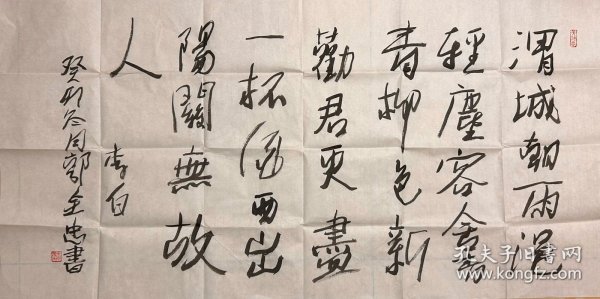 渭城朝雨浥
輕塵客舍青
青柳色新
勸君更盡
一杯酒西出
陽關無故
人
李白
癸卯冬月郭忠書
孔夫子旧书网
www.kongfz.com